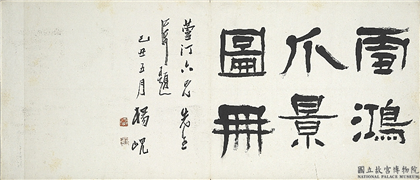 雪鴻
爪景
圖冊
汀六兄先生
屬題
己丑五月楊峴
國立故宮博物院
NATIONAL PALACE MUSEUM